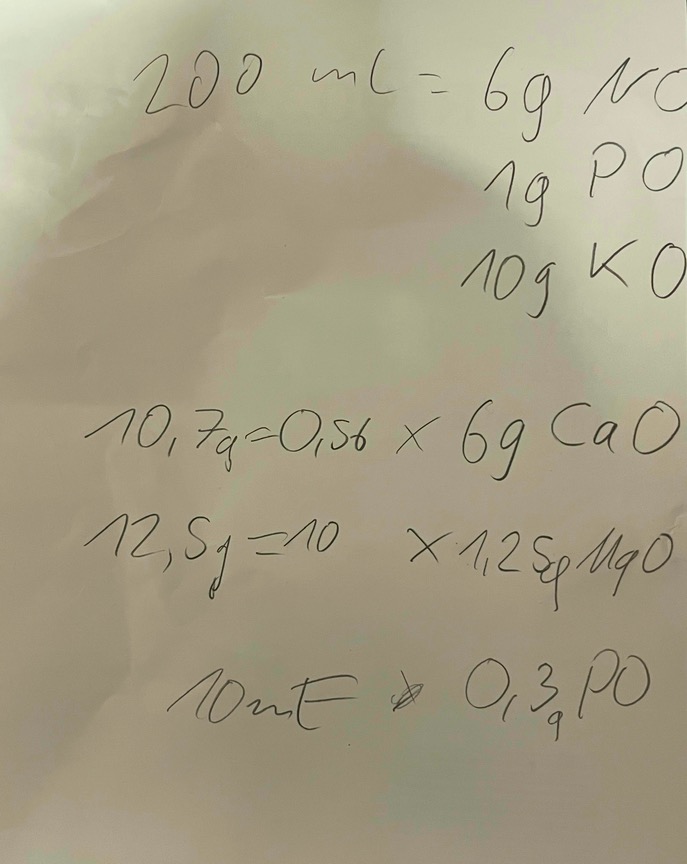 200 ml = 6g NO
1g PO
10g KO
10,7g=0,56 x 6g CaO
12,5g=10 x 1,25g MgO
10mE x 0,3g PO